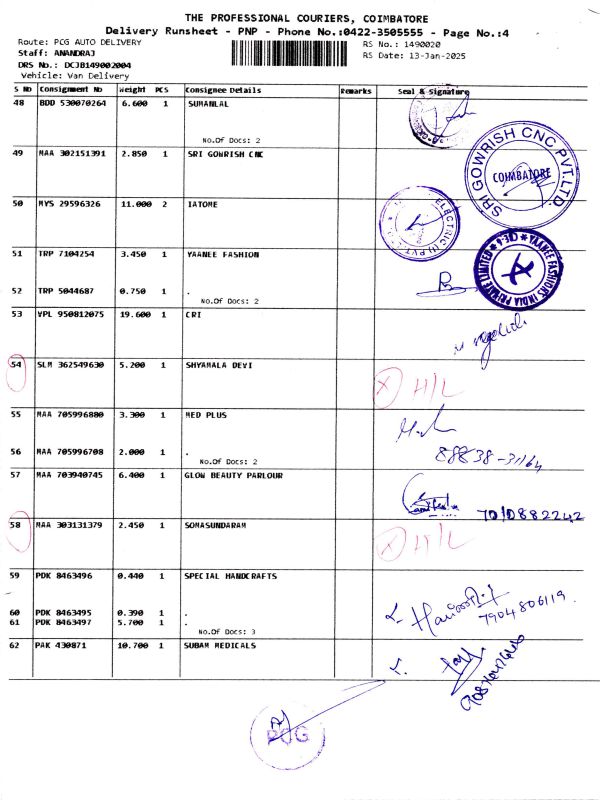 THE PROFESSIONAL COURIERS, COIMBATORE
Delivery Runsheet - PNP - Phone No.:0422-3505555 - Page No.:4
Route: PCG AUTO DELIVERY
RS No.: 1490020
Staff: ANANDRAJ
RS Date: 13-Jan-2025
DRS No.: DCJB149002004
Vehicle: Van Delivery
S No Consignment No Weight PCS Consignee Details Remarks Seal & Signature
48 BDD 530070264 6.600 1 SUMANLAL
No.Of Docs: 2
49 MAA 302151391 2.850 1 SRI GOWRISH CNC
SRI GOWRISH CNC PVT.LTD. COIMBATORE
50 MYS 29596326 11.000 2 IATOME
ELECTRIC (I) PVT.
51 TRP 7104254 3.450 1 YAANEE FASHION
YAANEE FASHIONS INDIA PRIVATE LIMITED ★ CBE-6 ★
52 TRP 5044687 0.750 1 .
No.Of Docs: 2
53 VPL 950812075 19.600 1 CRI
54 SLM 362549630 5.200 1 SHYAMALA DEVI
X H/L
55 MAA 705996880 3.300 1 MED PLUS
56 MAA 705996708 2.000 1 .
No.Of Docs: 2
88838-31164
57 MAA 703940745 6.400 1 GLOW BEAUTY PARLOUR
7010882242
58 MAA 303131379 2.450 1 SOMASUNDARAM
X H/L
59 PDK 8463496 0.440 1 SPECIAL HANDCRAFTS
60 PDK 8463495 0.390 1 .
61 PDK 8463497 5.700 1 .
No.Of Docs: 3
7904806119
62 PAK 430871 10.700 1 SUBAM MEDICALS
PCG